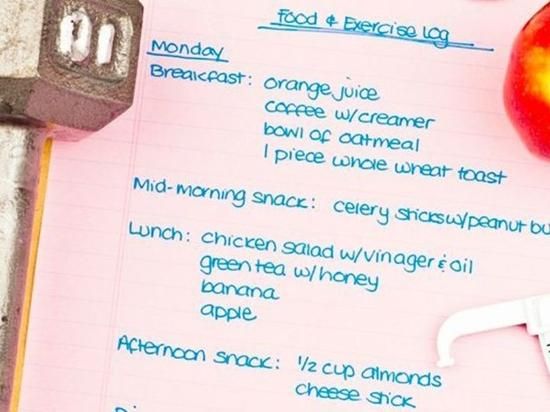 01
Food & Exercise Log
Monday
Breakfast: orange juice
coffee w/creamer
bowl of oatmeal
1 piece whole wheat toast
Mid-morning snack: celery sticks w/peanut bu
Lunch: chicken salad w/vinager & oil
green tea w/honey
banana
apple
Afternoon snack: 1/2 cup almonds
cheese stick